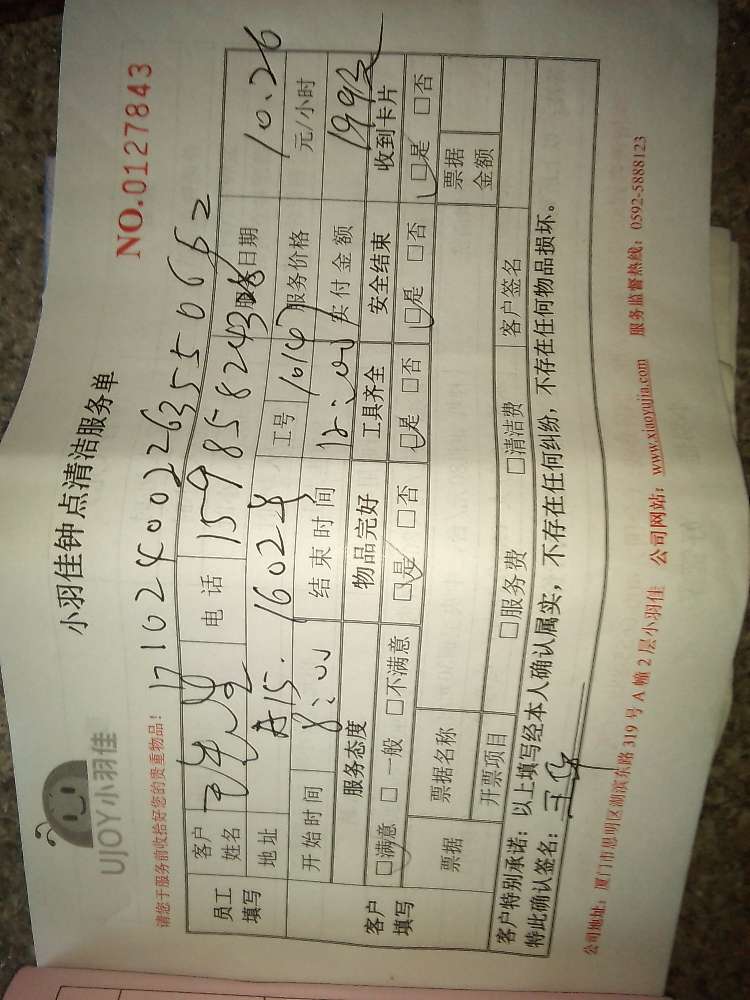 UJOY小羽佳
小羽佳钟点清洁服务单
NO.0127843
请您于服务前收拾好您的贵重物品!
1716240022635550662
员工填写
客户姓名 王先生 电话 15985824326 服务日期 10.26
地址 A15. 1602 工号 10147 服务价格 元/小时
开始时间 8:00 结束时间 12:00 实付金额 199
客户填写
服务态度 物品完好 工具齐全 安全结束 收到卡片
□满意 □一般 □不满意 □是 □否 □是 □否 □是 □否 □是 □否
票据 票据名称 票据金额
开票项目 □服务费 □清洁费 客户签名
客户特别承诺:以上填写经本人确认属实,不存在任何纠纷,不存在任何物品损坏。
特此确认签名:
公司地址:厦门市思明区湖滨东路 319 号 A 幢 2 层小羽佳 公司网站:www.xiaoyujia.com 服务监督热线:0592-5888123